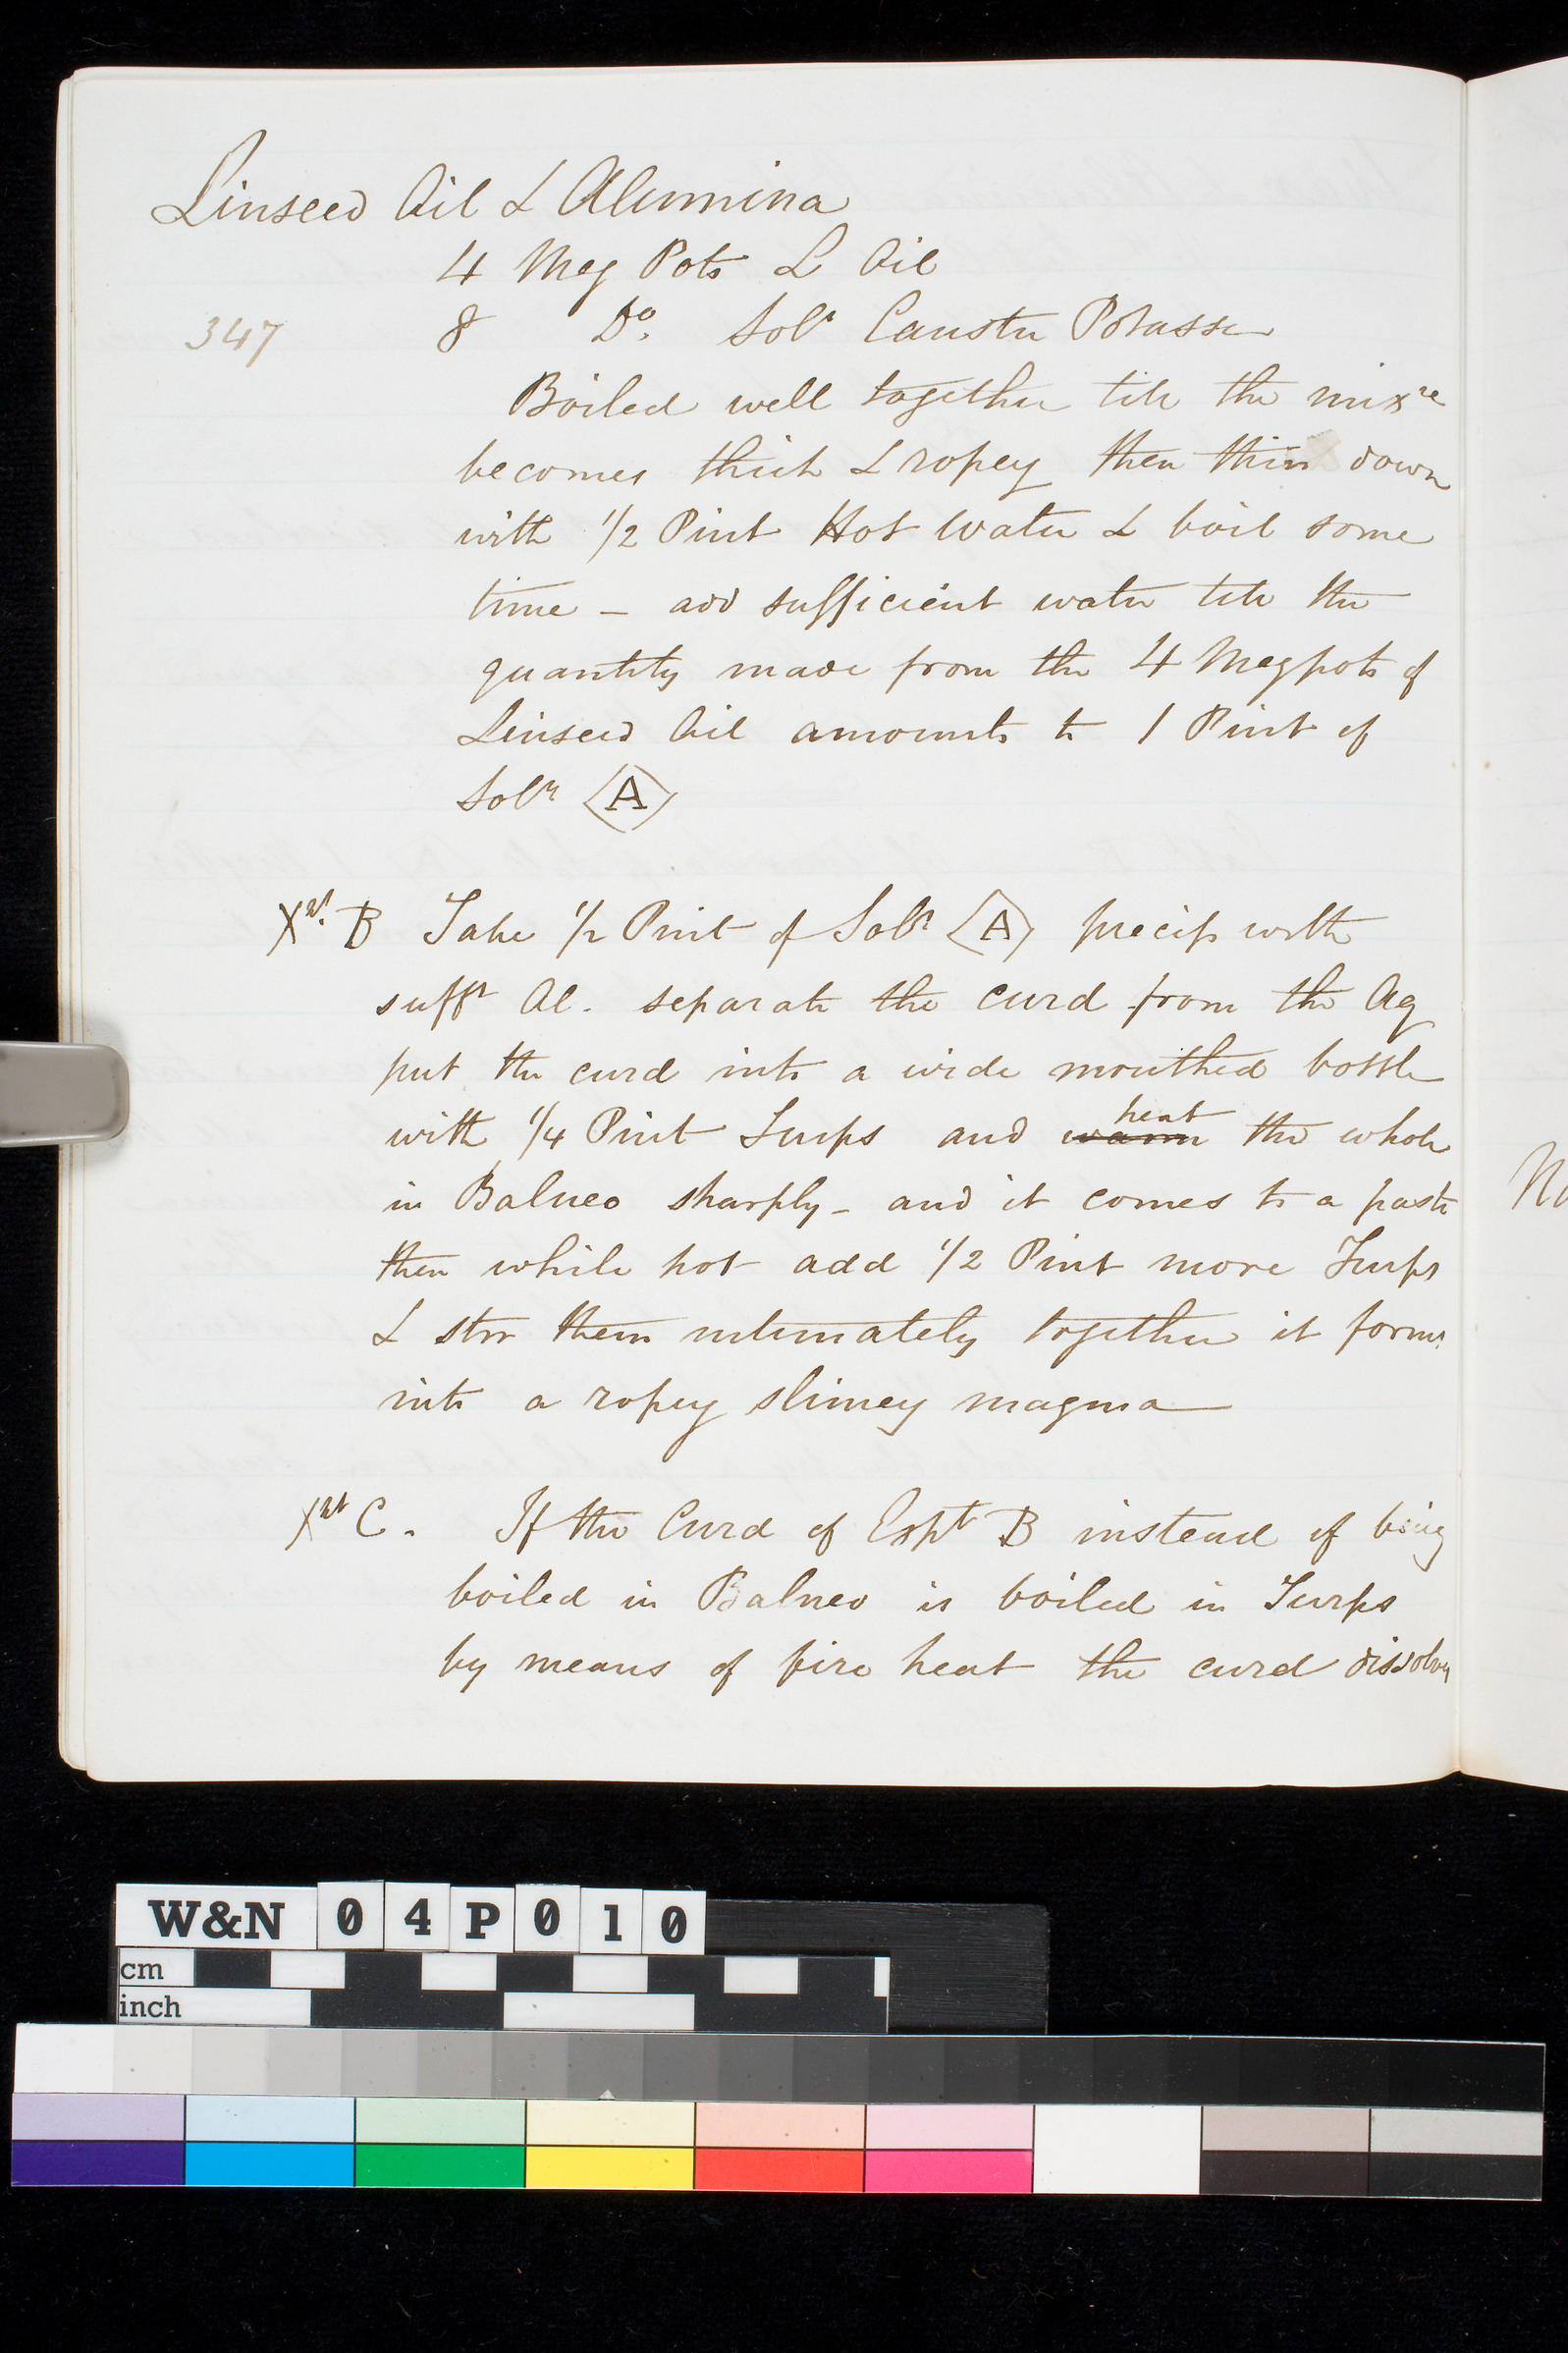 Linseed Oil & Alumina
4 Meg Pots L Oil
347
8 Do. Solⁿ Caustic Potasse
Boiled well together till the mixre
becomes thick & ropey then thin down
with 1/2 Pint Hot Water & boil some
time – add sufficient water till the
quantity made from the 4 Megpots of
Linseed Oil amounts to 1 Pint of
Solⁿ A
Xnt. B Take 1/2 Pint of Solⁿ A precip with
sufft Al. separate the curd from the Aq
put the curd into a wide mouthed bottle
with 1/4 Pint Turps and warm heat the whole
in Balneo sharply – and it comes to a paste
then while hot add 1/2 Pint more Turps
& stir them intimately together it forms
into a ropey slimey magma
Xnt C. If the Curd of Expt B instead of being
boiled in Balneo is boiled in Turps
by means of fire heat the curd dissolves
W&N 04P010
cm
inch